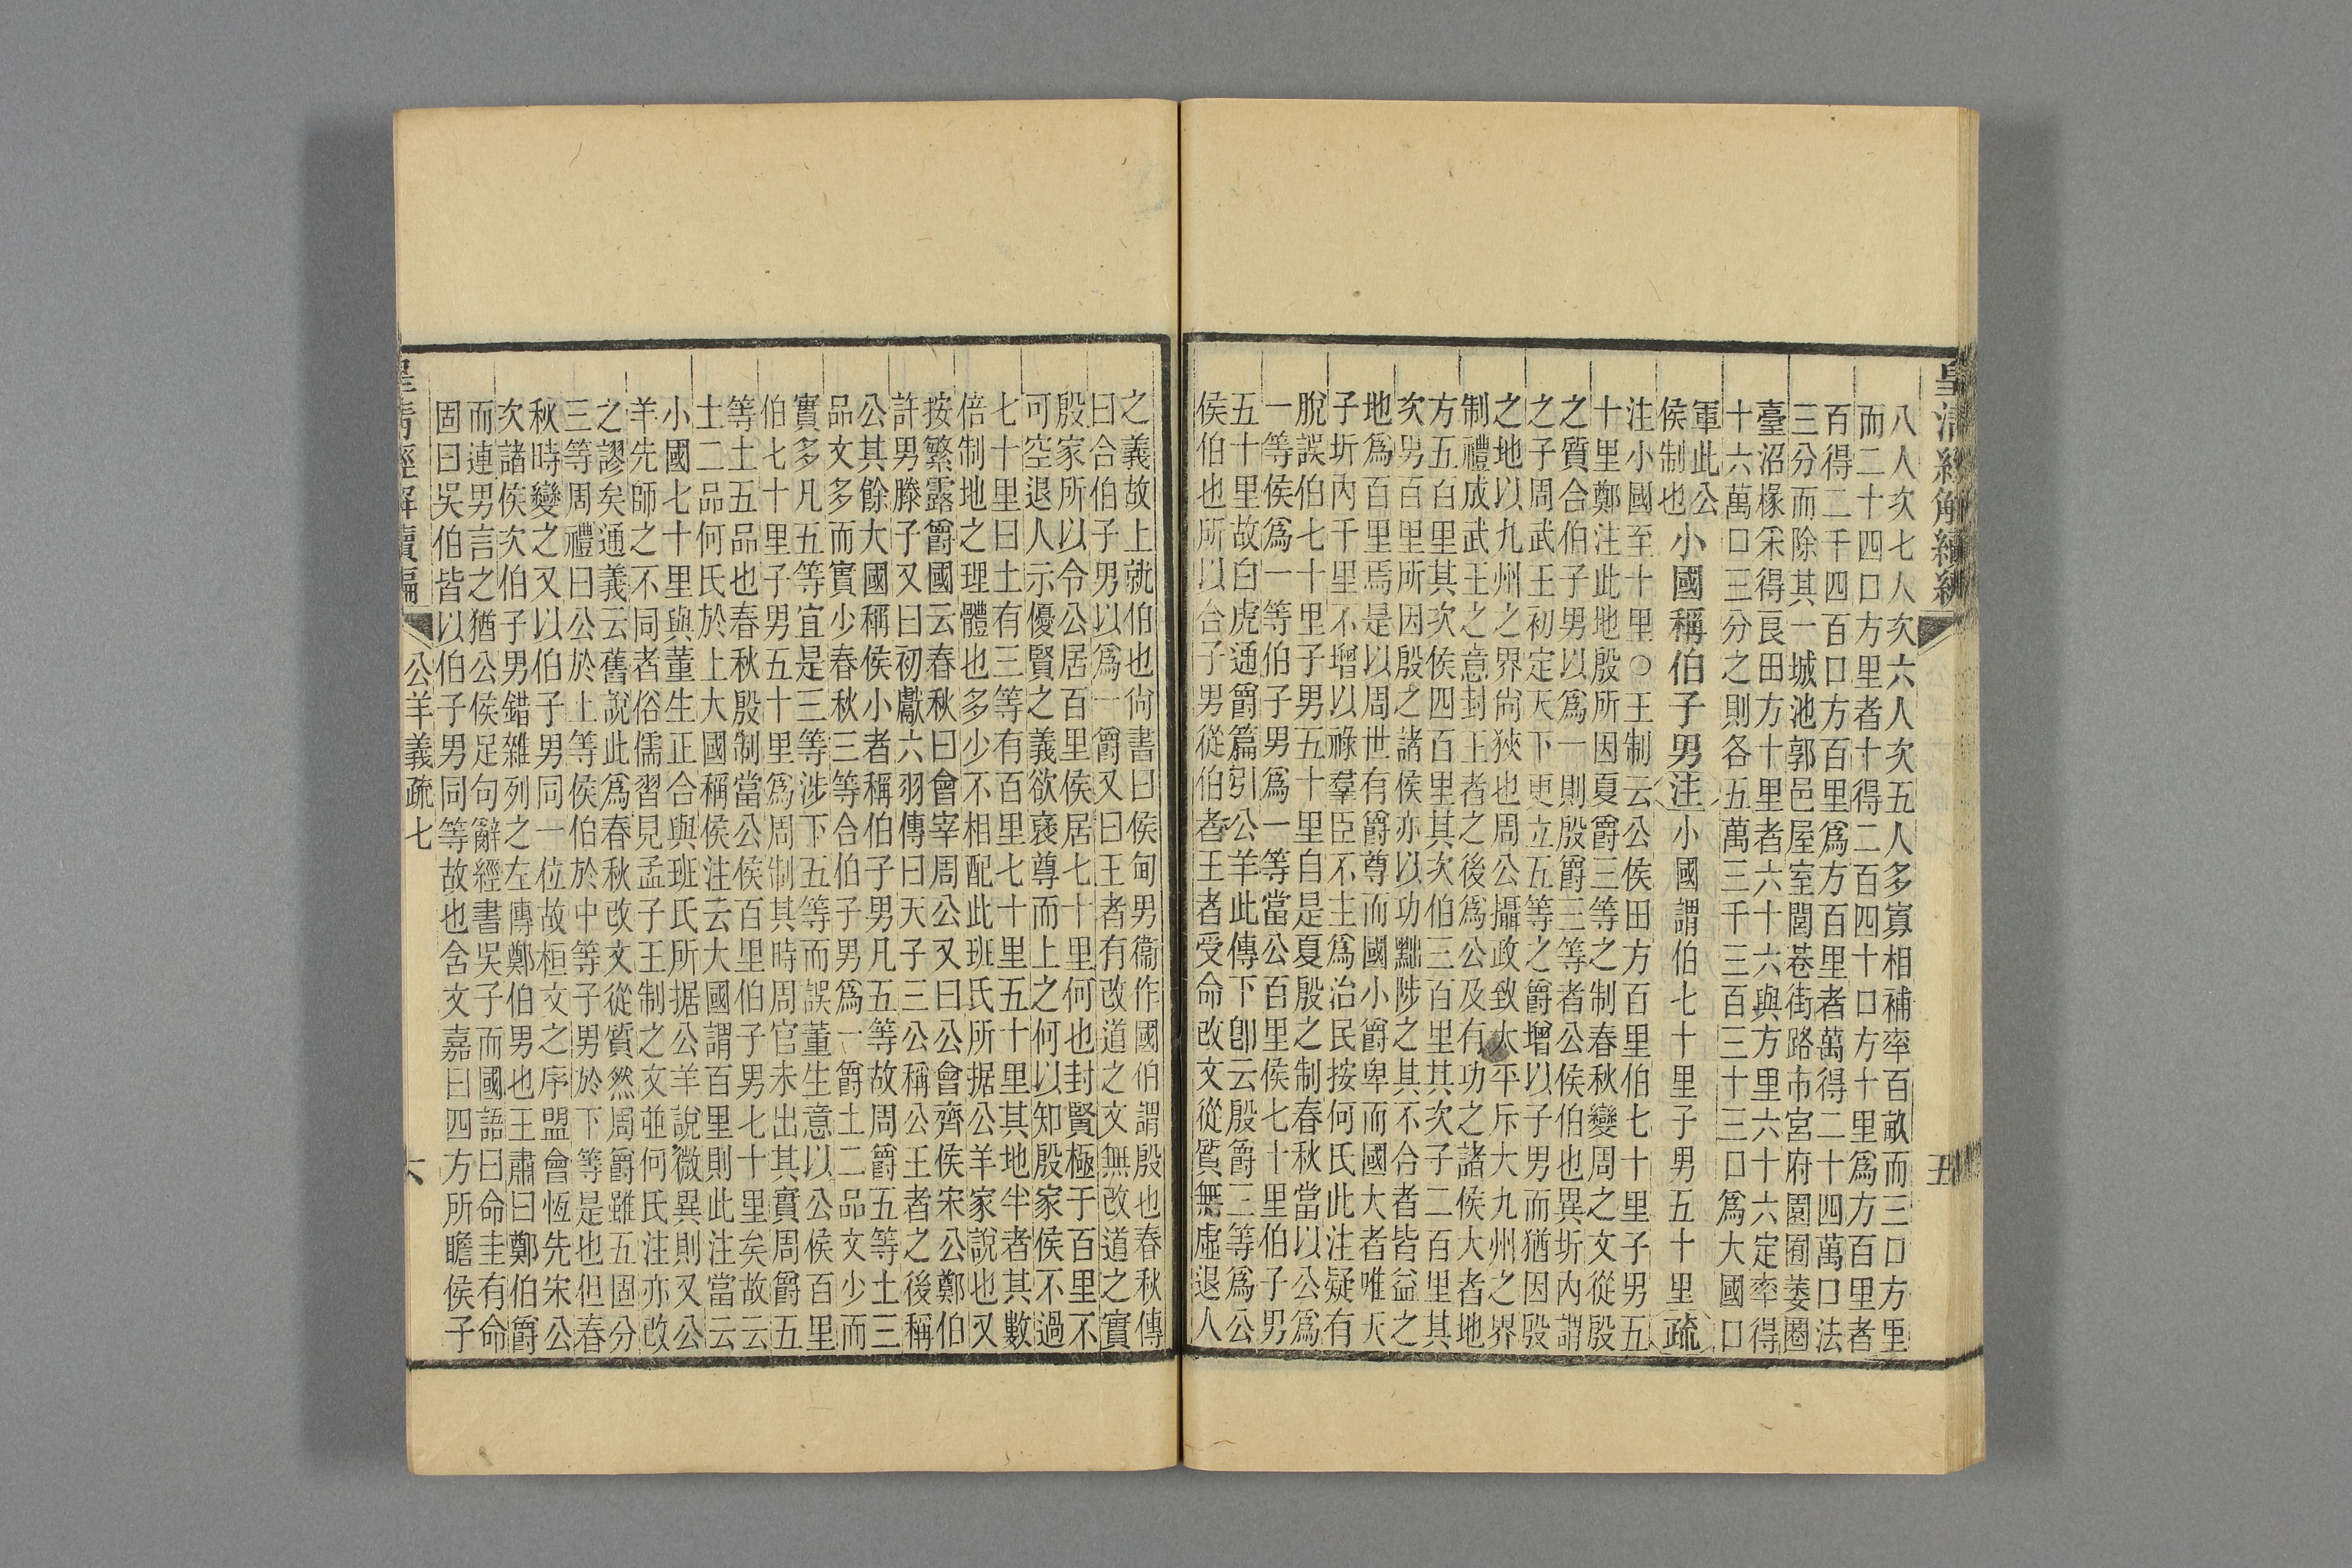 皇清經解續編
八人次七人次六人次五人多寡相補率百畝而三口方里
而二十四口方里者十得二百四十口方十里爲方百里者
百得二千四百口方百里爲方百里者萬得二十四萬口法
三分而除其一城池郭邑屋室閭巷街路市宮府園囿萎圈
臺沼椽采得良田方十里者六十六與方里六十六定率得
十六萬口三分之則各五萬三千三百三十三口爲大國口
軍此公
侯制也
小國稱伯子男
注
小國謂伯七十里子男五十里
疏
注小國至十里○王制云公侯田方百里伯七十里子男五
十里鄭注此地殷所因夏爵三等之制春秋變周之文從殷
之質合伯子男以爲一則殷爵三等者公侯伯也異圻內謂
之子周武王初定天下更立五等之爵增以子男而猶因殷
之地以九州之界尙狹也周公攝政致太平斥大九州之界
制禮成武王之意封王者之後爲公及有功之諸侯大者地
方五百里其次侯四百里其次伯三百里其次子二百里其
次男百里所因殷之諸侯亦以功黜陟之其不合者皆益之
地爲百里焉是以周世有爵尊而國小爵卑而國大者唯天
子圻內千里不增以祿羣臣不主爲治民按何氏此注疑有
脫誤伯七十里子男五十里自是夏殷之制春秋當以公爲
一等侯爲一等伯子男爲一等當公百里侯七十里伯子男
五十里故白虎通爵篇引公羊此傳下卽云殷爵三等爲公
侯伯也所以合子男從伯者王者受命改文從質無虛退人
之義故上就伯也尙書曰侯甸男衞作國伯謂殷也春秋傳
曰合伯子男以爲一爵又曰王者有改道之文無改道之實
殷家所以令公居百里侯居七十里何也封賢極于百里不
可空退人示優賢之義欲襃尊而上之何以知殷家侯不過
七十里曰土有三等有百里七十里五十里其地半者其數
倍制地之理體也多少不相配此班氏所据公羊家說也又
按繁露爵國云春秋曰會宰周公又曰公會齊侯宋公鄭伯
許男滕子又曰初獻六羽傳曰天子三公稱公王者之後稱
公其餘大國稱侯小者稱伯子男凡五等故周爵五等土三
品文多而實少春秋三等合伯子男爲一爵土二品文少而
實多凡五等宜是三等涉下五等而誤董生意以公侯百里
伯七十里子男五十里爲周制其時周官未出其實周爵五
等土五品也春秋殷制當公侯百里伯子男七十里矣故云
土二品何氏於上大國稱侯注云大國謂百里則此注當云
小國七十里與董生正合與班氏所据公羊說微異則又公
羊先師之不同者俗儒習見孟子王制之文並何氏注亦改
之謬矣通義云舊說此爲春秋改文從質然周爵雖五固分
三等周禮曰公於上等侯伯於中等子男於下等是也但春
秋時變之又以伯子男同一位故桓文之序盟會恆先宋公
次諸侯次伯子男錯雜列之左傳鄭伯男也王肅曰鄭伯爵
而連男言之猶公侯足句辭經書吳子而國語曰命圭有命
固曰吳伯皆以伯子男同等故也含文嘉曰四方所瞻侯子
公羊義疏七
六